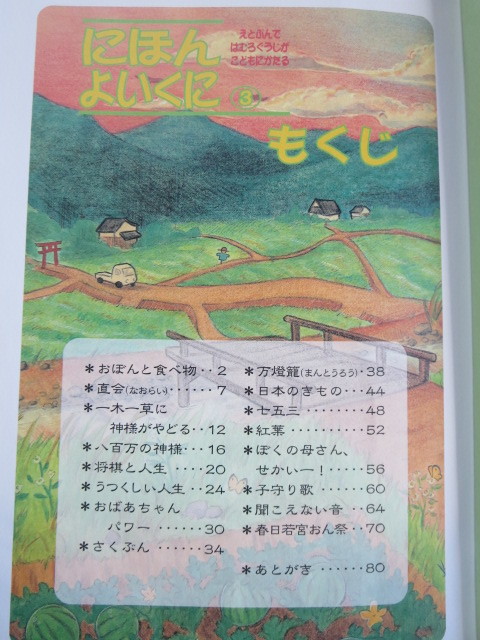 にほん
よいくに
3
えとぶんで
はむろぐうじが
こどもにかたる
もくじ
＊おぼんと食べ物‥2
＊直会(なおらい)‥‥‥7
＊一木一草に
神様がやどる‥12
＊八百万の神様‥‥16
＊将棋と人生‥‥20
＊うつくしい人生‥24
＊おばあちゃん
パワー‥‥‥30
＊さくぶん‥‥‥34
＊万燈籠(まんとうろう)・38
＊日本のきもの‥‥44
＊七五三‥‥‥‥‥48
＊紅葉‥‥‥‥‥‥52
＊ぼくの母さん、
せかいー！‥‥‥56
＊子守り歌‥‥‥‥60
＊聞こえない音‥‥64
＊春日若宮おん祭‥70
＊あとがき‥‥‥80